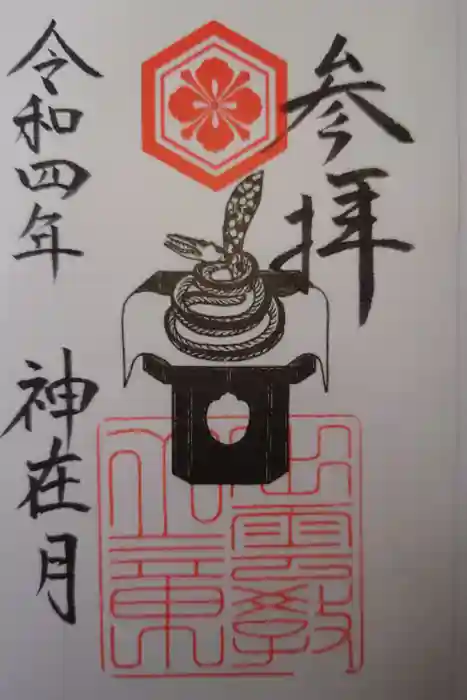 参拝
令和四年
神在月
出雲教